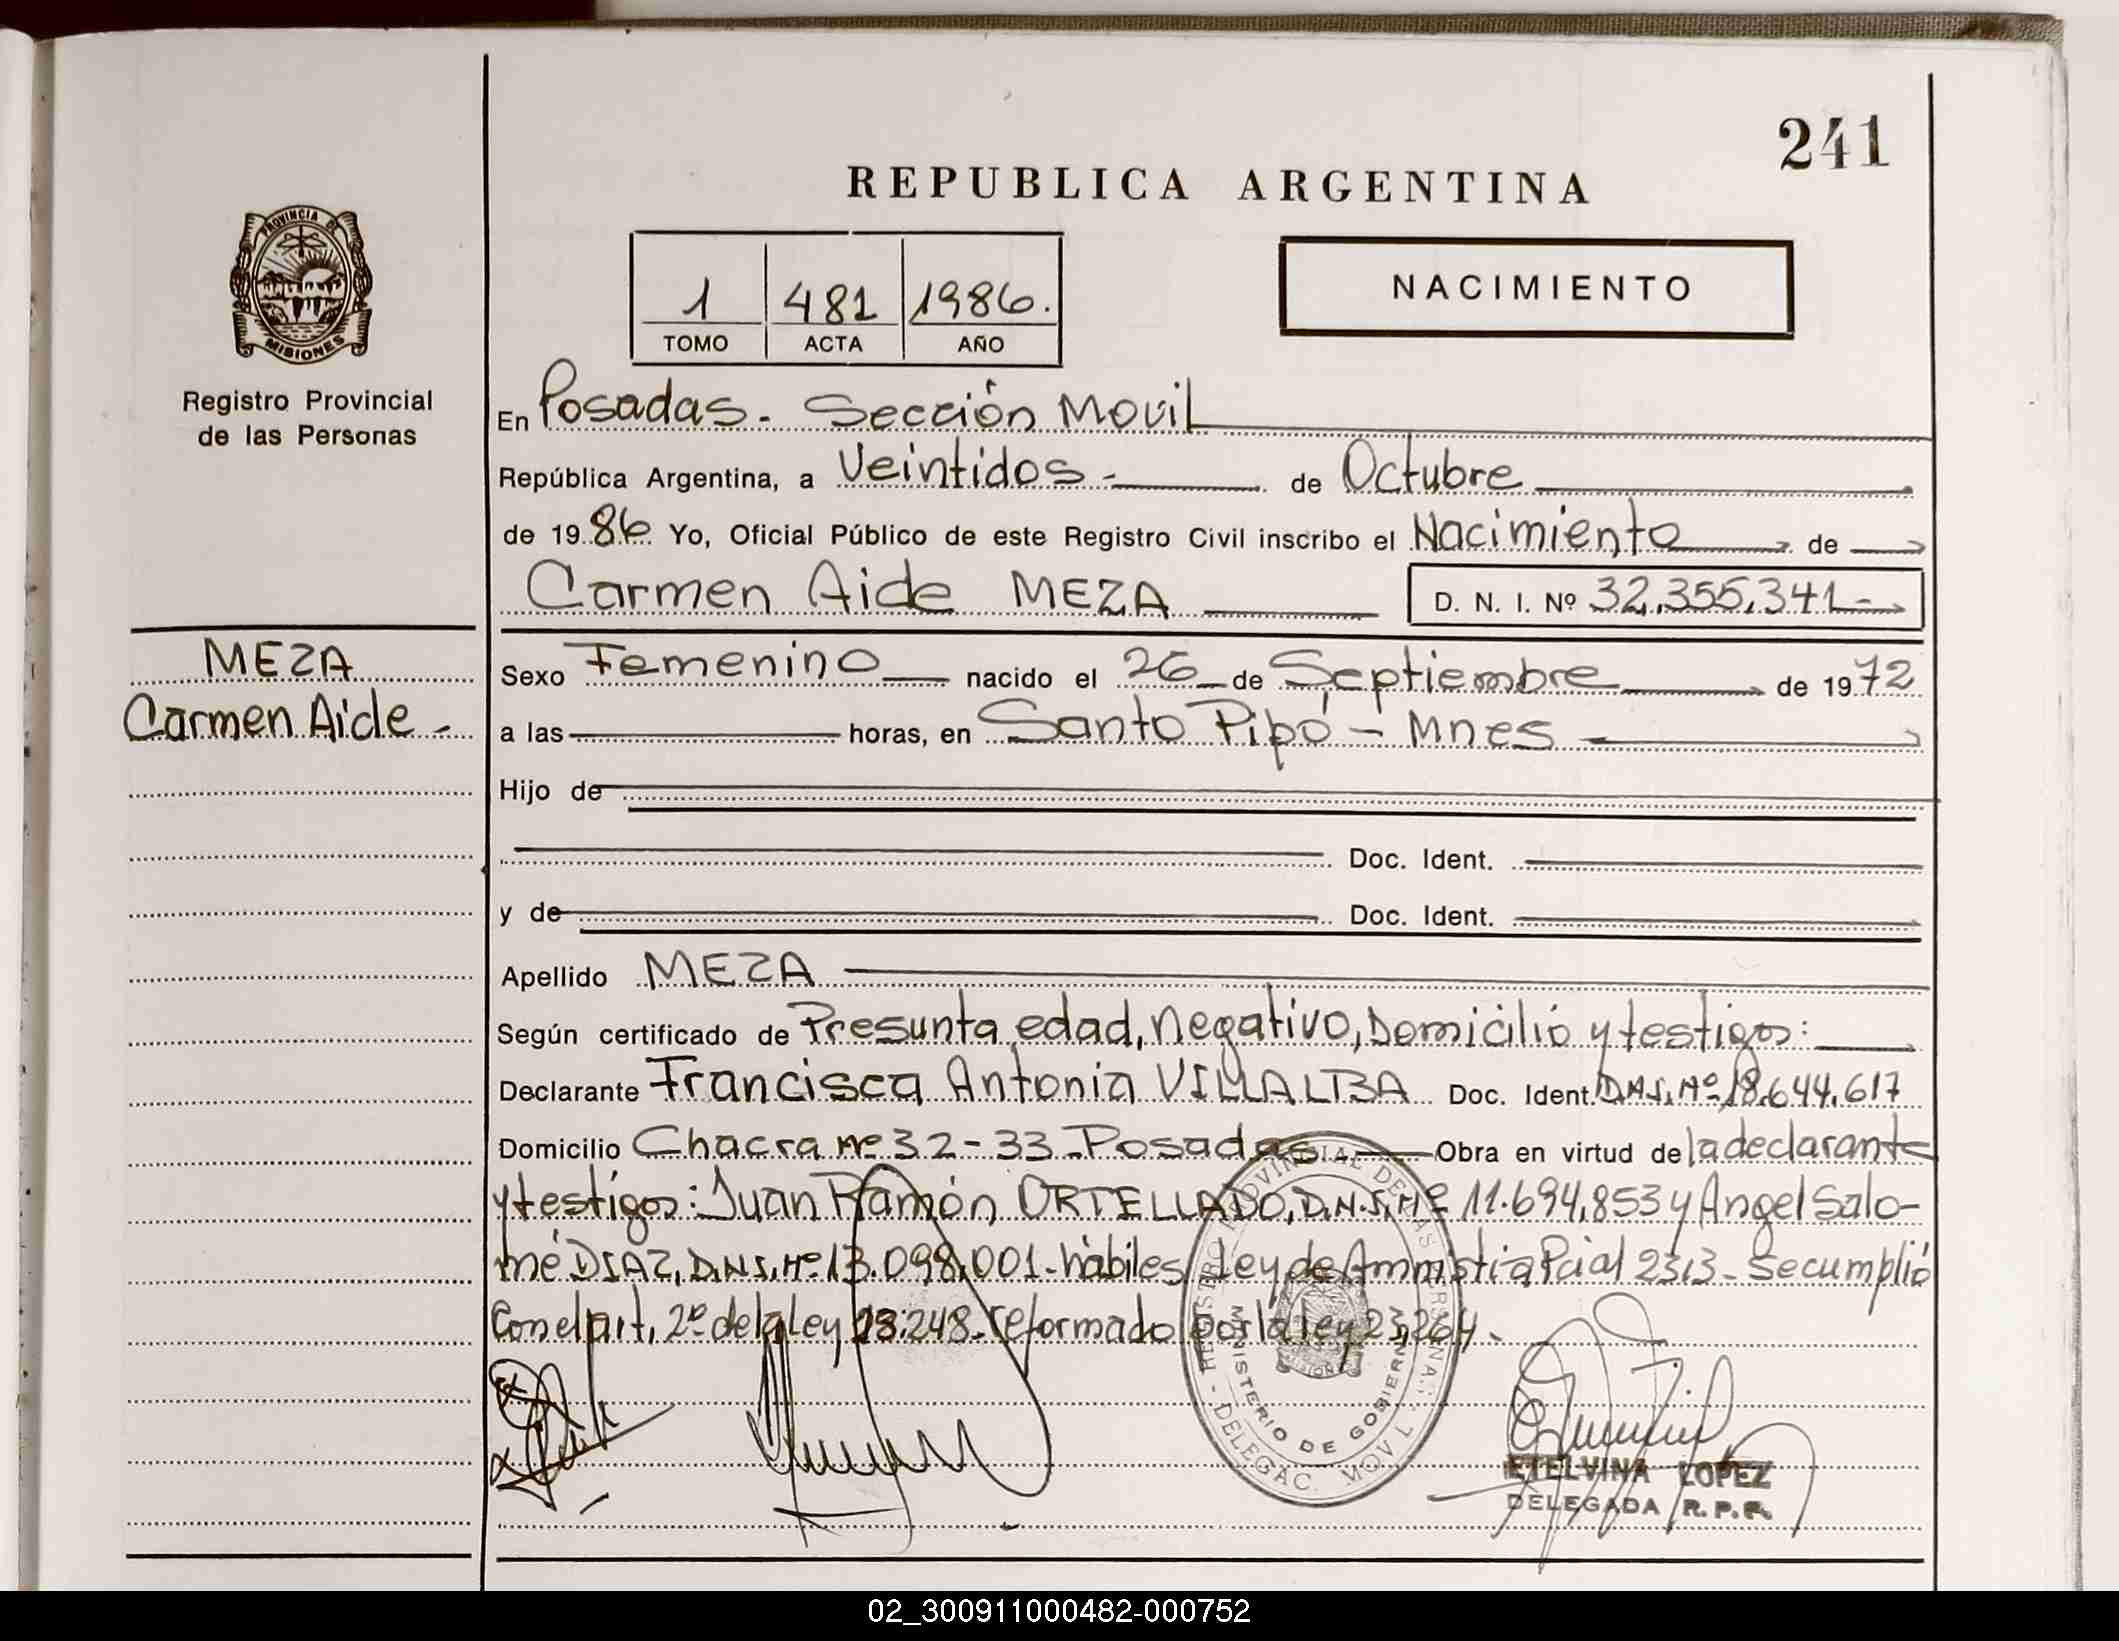 241
REPUBLICA ARGENTINA
PROVINCIA DE
MISIONES
Registro Provincial
de las Personas
1 481 1986.
TOMO ACTA AÑO
NACIMIENTO
En Posadas. Sección Movil
República Argentina, a Veintidos - de Octubre
de 1986 Yo, Oficial Público de este Registro Civil inscribo el Nacimiento de
Carmen Aide MEZA D. N. I. Nº 32.355.341-
MEZA
Carmen Aide -
Sexo Femenino nacido el 26 de Septiembre de 1972
a las horas, en Santo Pipó - Mnes
Hijo de
Doc. Ident.
y de Doc. Ident.
Apellido MEZA
Según certificado de Presunta edad, negativo, Domicilio y testigos:
Declarante Francisca Antonia VILLALBA Doc. Ident. D.N.I. Nº 18.644.617
Domicilio Chacra Nº 32-33 - Posadas - Obra en virtud de la declarante
y testigos: Juan Ramón ORTELLADO, D.N.I. Nº 11.694.853 y Angel Salo-
mé DIAZ, D.N.I. Nº 13.098.001 - hàbiles Ley de Amnistia Pcial 2313 - Se cumplió
Con el art. 2º de la ley 23.248 - reformado por la ley 23.264 -
REGISTRO PROVINCIAL DE LAS PERSONAS
MINISTERIO DE GOBIERNO
DELEGAC. MOVIL
ETELVINA LOPEZ
DELEGADA R. P. P.
02_300911000482-000752